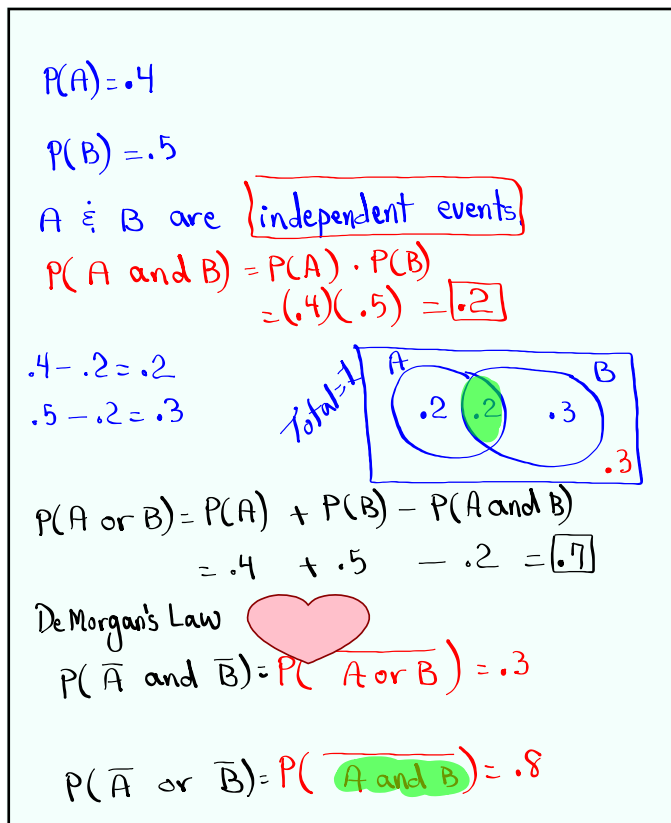 P(A) = .4
P(B) = .5
A & B are independent events.
P(A and B) = P(A) · P(B)
= (.4)(.5) = .2
.4 - .2 = .2
.5 - .2 = .3
Total = 1
A B
.2 .2 .3
.3
P(A or B) = P(A) + P(B) - P(A and B)
= .4 + .5 - .2 = .7
De Morgan's Law
P(A̅ and B̅) = P(A̅ ̅o̅r̅ ̅B̅) = .3
P(A̅ or B̅) = P(A̅ ̅a̅n̅d̅ ̅B̅) = .8